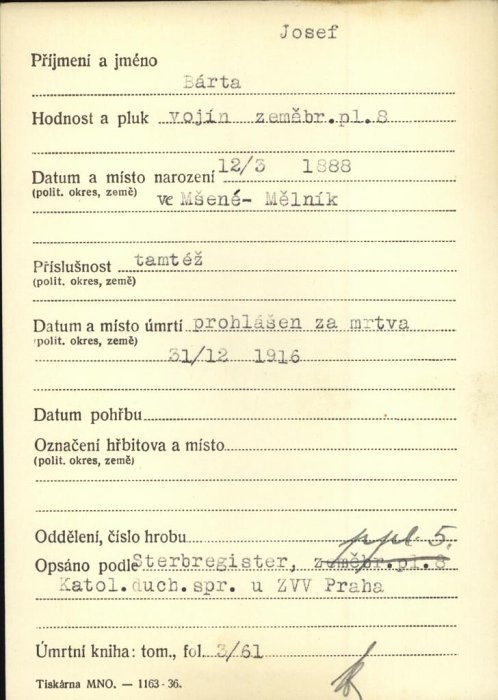 Josef
Příjmení a jméno
Bárta
Hodnost a pluk vojín zeměbr.pl.8
Datum a místo narození 12/3 1888
(polit. okres, země) ve Mšené- Mělník
Příslušnost tamtéž
(polit. okres, země)
Datum a místo úmrtí prohlášen za mrtva
(polit. okres, země) 31/12 1916
Datum pohřbu
Označení hřbitova a místo
(polit. okres, země)
Oddělení, číslo hrobu ppl. 5.
Opsáno podle Sterbregister, zeměbr.pl.8
Katol.duch.spr. u ZVV Praha
Úmrtní kniha: tom., fol. 3/61
Tiskárna MNO. — 1163-36.